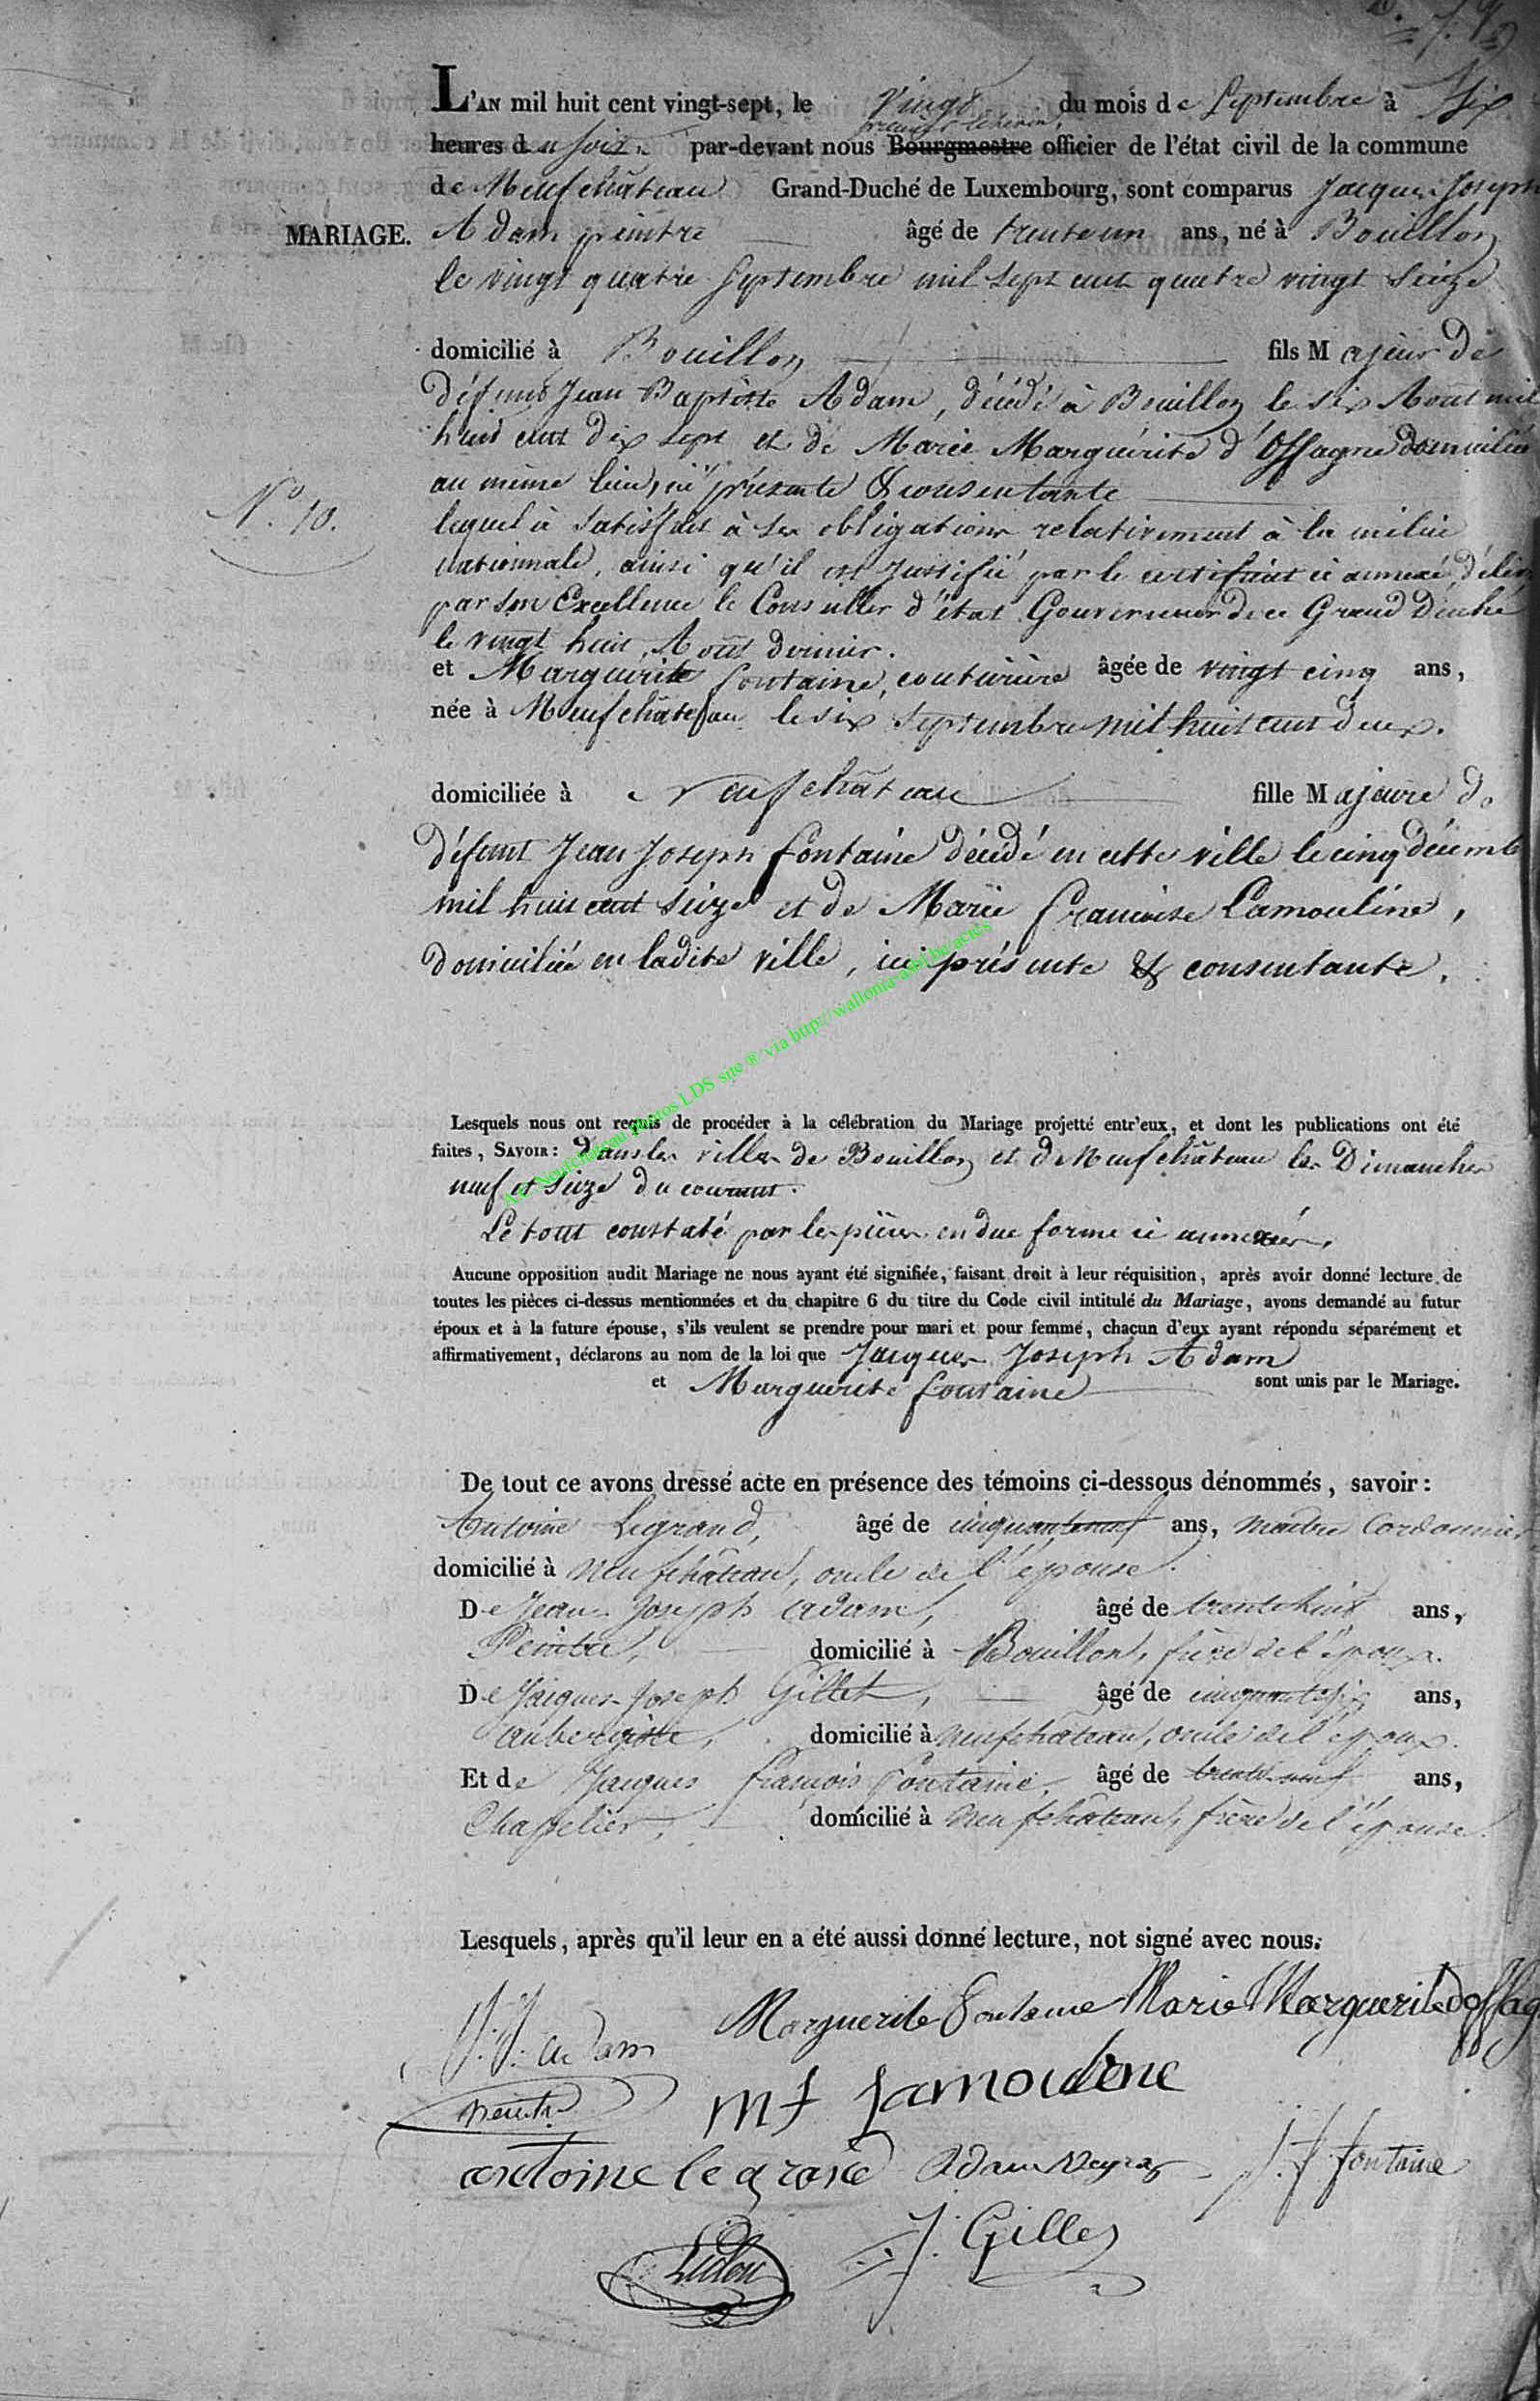 L'AN mil huit cent vingt-sept, le Vingt du mois de Septembre à Six
premier Echevin,
heures du soir par-devant nous Bourgmestre officier de l'état civil de la commune
de Neufchâteau Grand-Duché de Luxembourg, sont comparus Jacques Joseph
MARIAGE.
Adam peintre âgé de trente un ans, né à Bouillon
le vingt quatre Septembre mil sept cent quatre vingt seize
domicilié à Bouillon fils Majeur de
défunt Jean Baptiste Adam, décédé à Bouillon le six Aout mil
huit cent dix sept et de Marie Marguérite d'Offagne domiciliée
au même lieu, ici présente & consentante
N.o 10.
lequel à satisfait à ses obligations relativement à la milice
nationnale, ainsi qu'il est justifié par le certificat ci annexé, déliv
par Son Excellence le Conseiller d'état Gouverneur de ce Grand Duché
le vingt huit Aout dernier.
et Marguérite fontaine, couturière âgée de vingt cinq ans,
née à Neufchâteau le six Septembre mil huit cent deux.
domiciliée à neufchâteau fille Majeure de
défunt Jean Joseph fontaine décédé en cette ville le cinq décemb
mil huit cent seize et de Marie francoise Lamouline,
domiciliée en ladite ville, ici présente & consentante.
A.E. Neufchateau photos LDS site ® via http://wallonia-asbl.be/actes
Lesquels nous ont requis de procéder à la célébration du Mariage projetté entr'eux, et dont les publications ont été
faites, SAVOIR: dans les villes de Bouillon et de Neufchâteau les Dimanches
neuf et seize du courant.
Le tout constaté par les pièces en due forme ci annexées.
Aucune opposition audit Mariage ne nous ayant été signifiée, faisant droit à leur réquisition, après avoir donné lecture de
toutes les pièces ci-dessus mentionnées et du chapitre 6 du titre du Code civil intitulé du Mariage, avons demandé au futur
époux et à la future épouse, s'ils veulent se prendre pour mari et pour femme, chacun d'eux ayant répondu séparément et
affirmativement, déclarons au nom de la loi que Jacques Joseph Adam
et Marguerite fontaine sont unis par le Mariage.
De tout ce avons dressé acte en présence des témoins ci-dessous dénommés, savoir:
Antoine Legrand, âgé de cinquante neuf ans, maitre Cordonnier
domicilié à neufchâteau, oncle de l'épouse.
De Jean Joseph Adam, âgé de trente huit ans,
Peintre, domicilié à Bouillon, frère de l'époux.
De Jacques Joseph Gillet, âgé de cinquante six ans,
aubergiste, domicilié à neufchâteau, oncle de l'époux.
Et de Jacques françois fontaine, âgé de trente neuf ans,
Chapelier, domicilié à neufchâteau, frère de l'épouse.
Lesquels, après qu'il leur en a été aussi donné lecture, ont signé avec nous.
J. J. Adam Marguerite fontaine Marie Marguerite doffag
peintre mf Lamouline
antoine legrand Adam J. f fontaine
J. Gillet